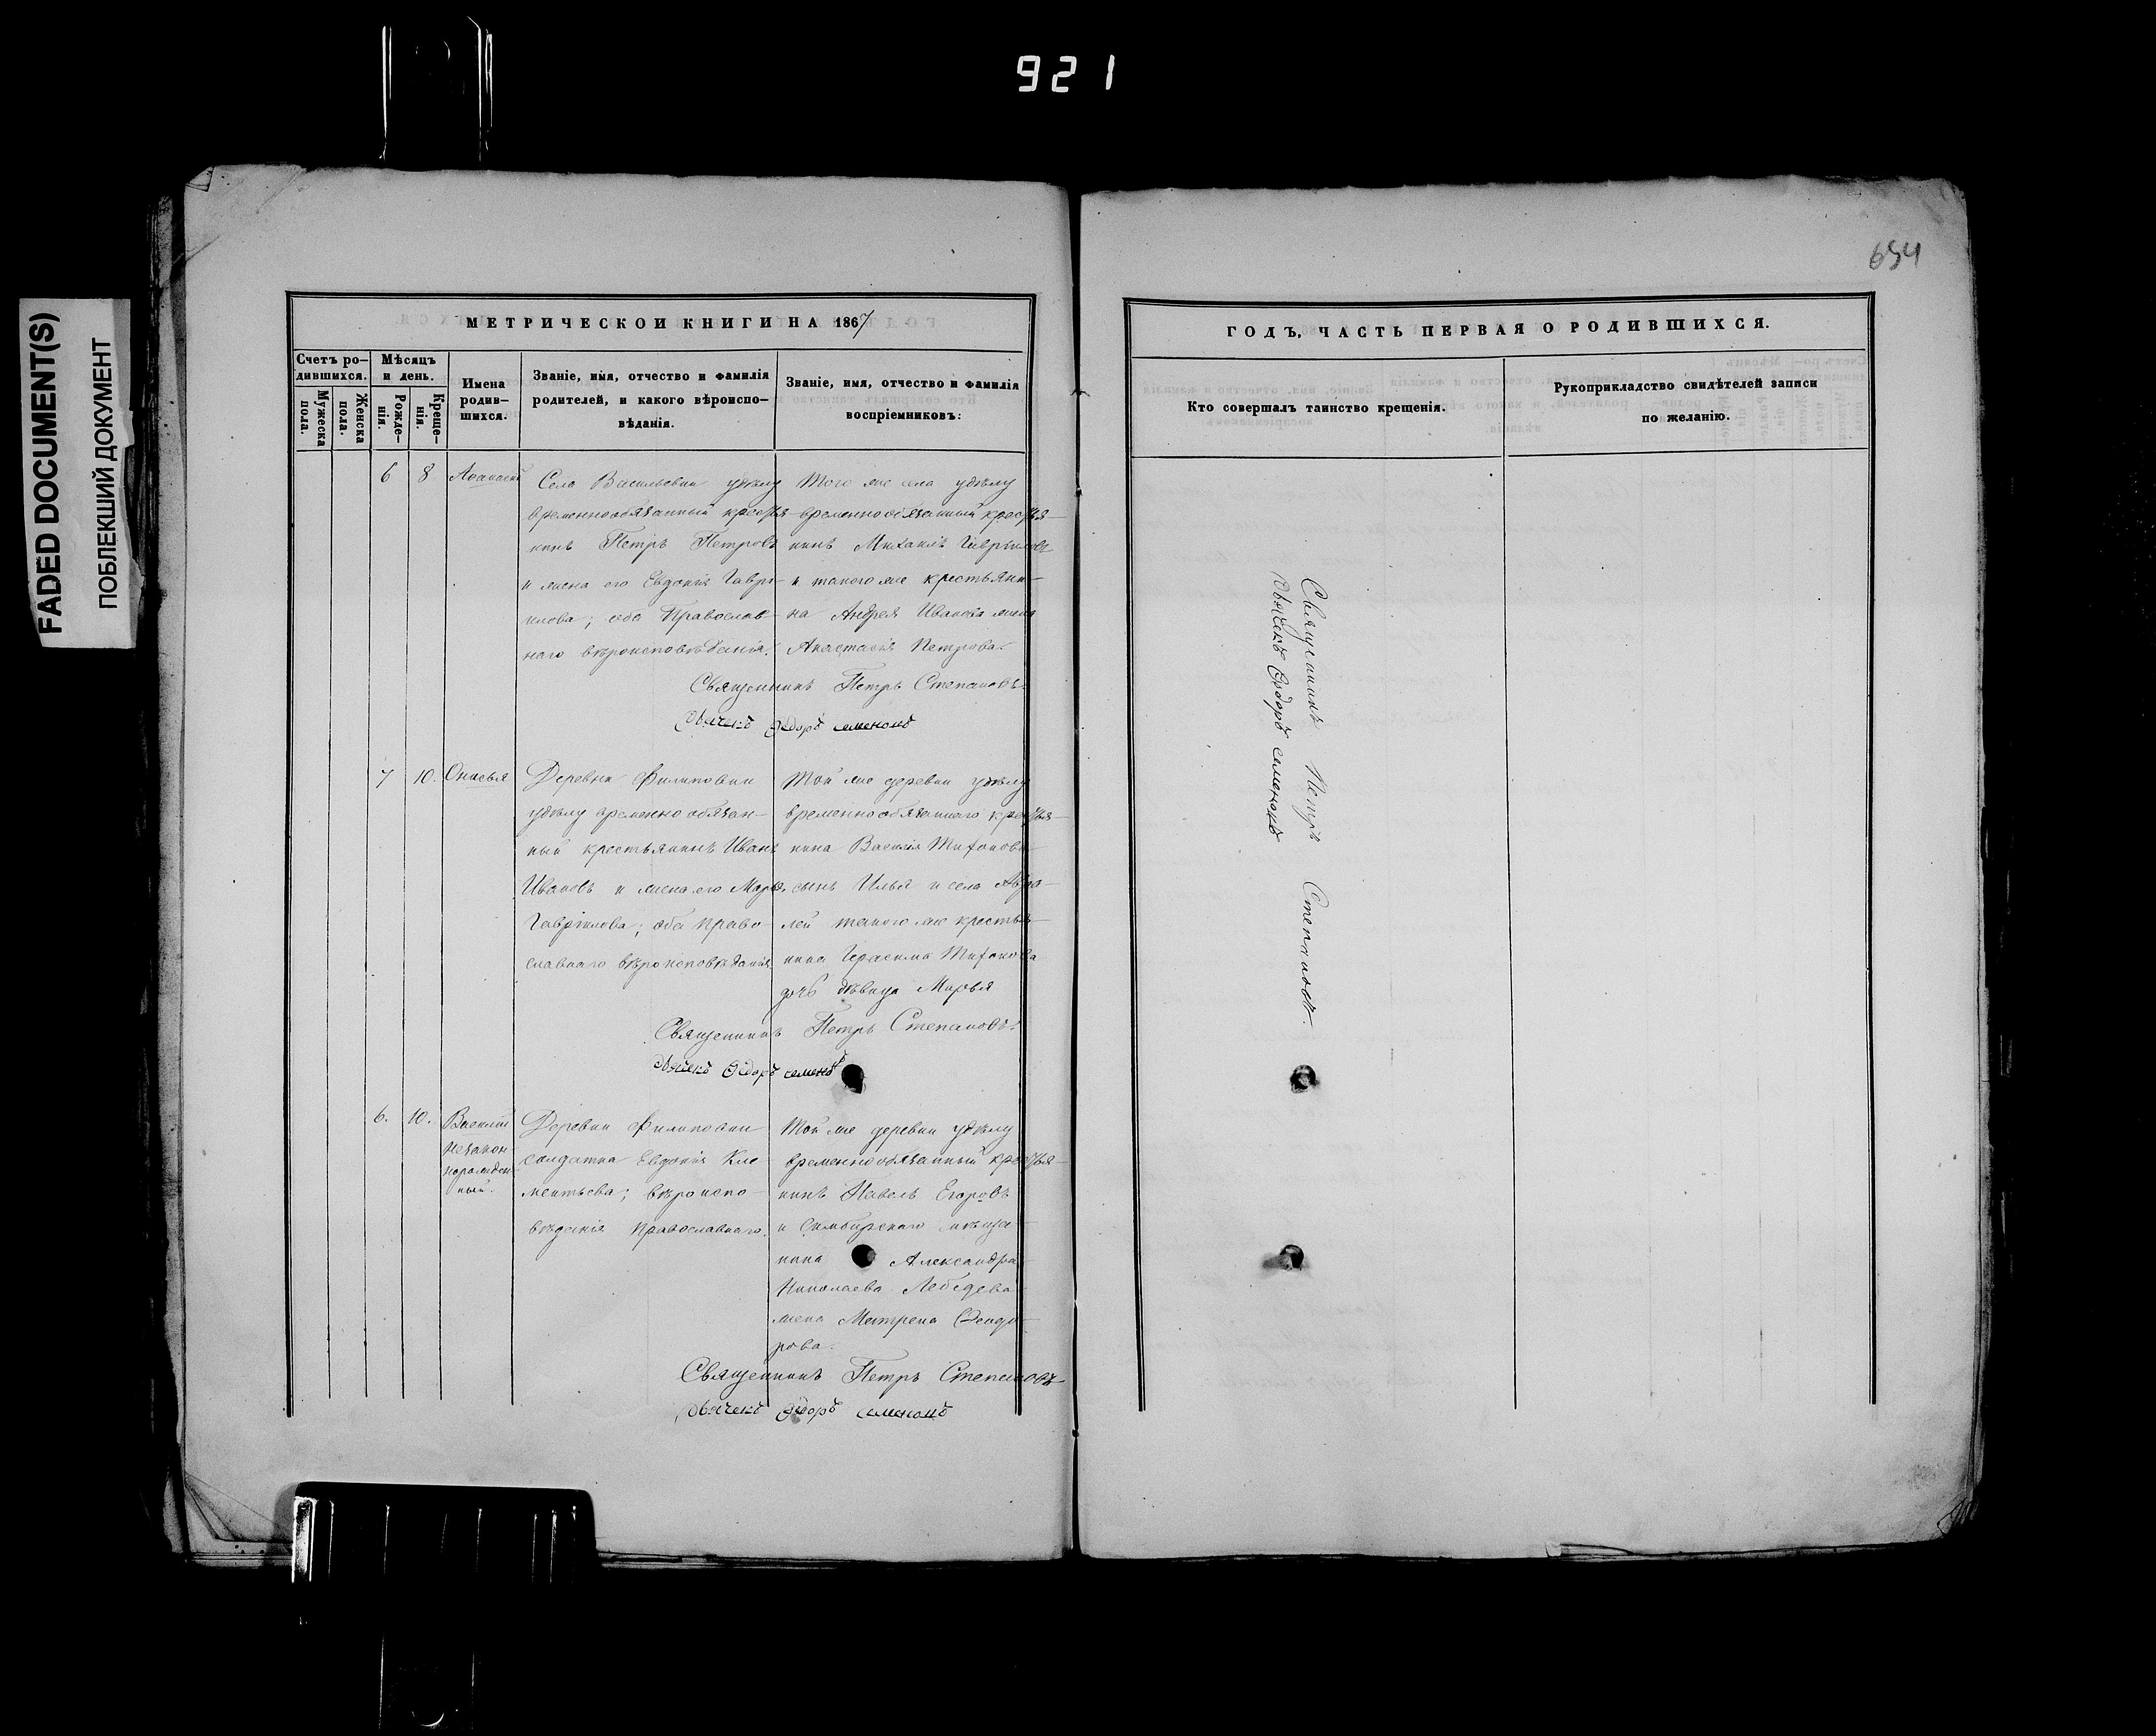 921
FADED DOCUMENT(S)
ПОБЛЕКШИЙ ДОКУМЕНТ
654
МЕТРИЧЕСКОЙ КНИГИ НА 1867
Счетъ родившихся.
Мужеска пола.
Женска пола.
Мѣсяцъ и день.
Рожденія.
Крещенія.
Имена родившихся.
Званіе, имя, отчество и фамилія
родителей, и какого вѣроиспо-
вѣданія.
Званіе, имя, отчество и фамилія
воспріемниковъ:
6 8 Аѳанасій
Села Васильевки удѣлу
временнообязанный крестья-
нинъ Петръ Петровъ
и жена его Евдокія Гаври-
лова; оба Православ-
наго вѣроисповѣданія.
Того же села удѣлу
временнообязанный крестья-
нинъ Михаилъ Гавриловъ
и такого же крестьяни-
на Андрея Иванова жена
Анастасія Петрова.
Священникъ Петръ Степановъ.
Дьячекъ Ѳедоръ
7 10. Онисья
Деревни Филиповки
удѣлу временно обязан-
ный крестьянинъ Иванъ
Ивановъ и жена его Марья
Гаврилова; оба право-
славнаго вѣроисповѣданія
Той же деревни удѣлу
временнообязаннаго крестья-
нина Василія Тихонова
сынъ Илья и села
лей такого же крестья-
нина Герасима Тихонова
дочь дѣвица Марья
Священникъ Петръ Степановъ.
Дьячекъ Ѳедоръ
6. 10. Василій
незакон
норожден
ный.
Деревни Филиповки
солдатка Евдокія Кле-
ментьева; вѣроиспо-
вѣданія православнаго.
Той же деревни удѣлу
временнообязанный крестья-
нинъ Павелъ Егоровъ
и Симбирскаго мѣща-
нина Александра
Николаева Лебедева
жена Матрена Ѳеодо-
рова.
Священникъ Петръ Степановъ
Дьячекъ Ѳедоръ
ГОДЪ, ЧАСТЬ ПЕРВАЯ О РОДИВШИХСЯ.
Кто совершалъ таинство крещенія.
Рукоприкладство свидѣтелей записи
по желанію.
Священникъ Петръ Степановъ.
Дьячекъ Ѳедоръ